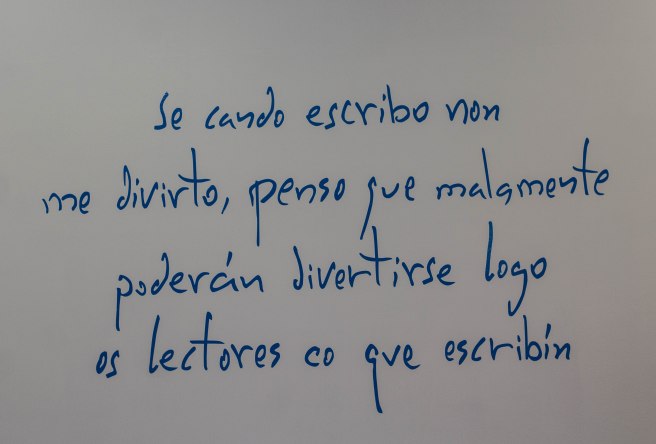 Se cando escribo non
me divirto, penso que malamente
poderán divertirse logo
os lectores co que escribín